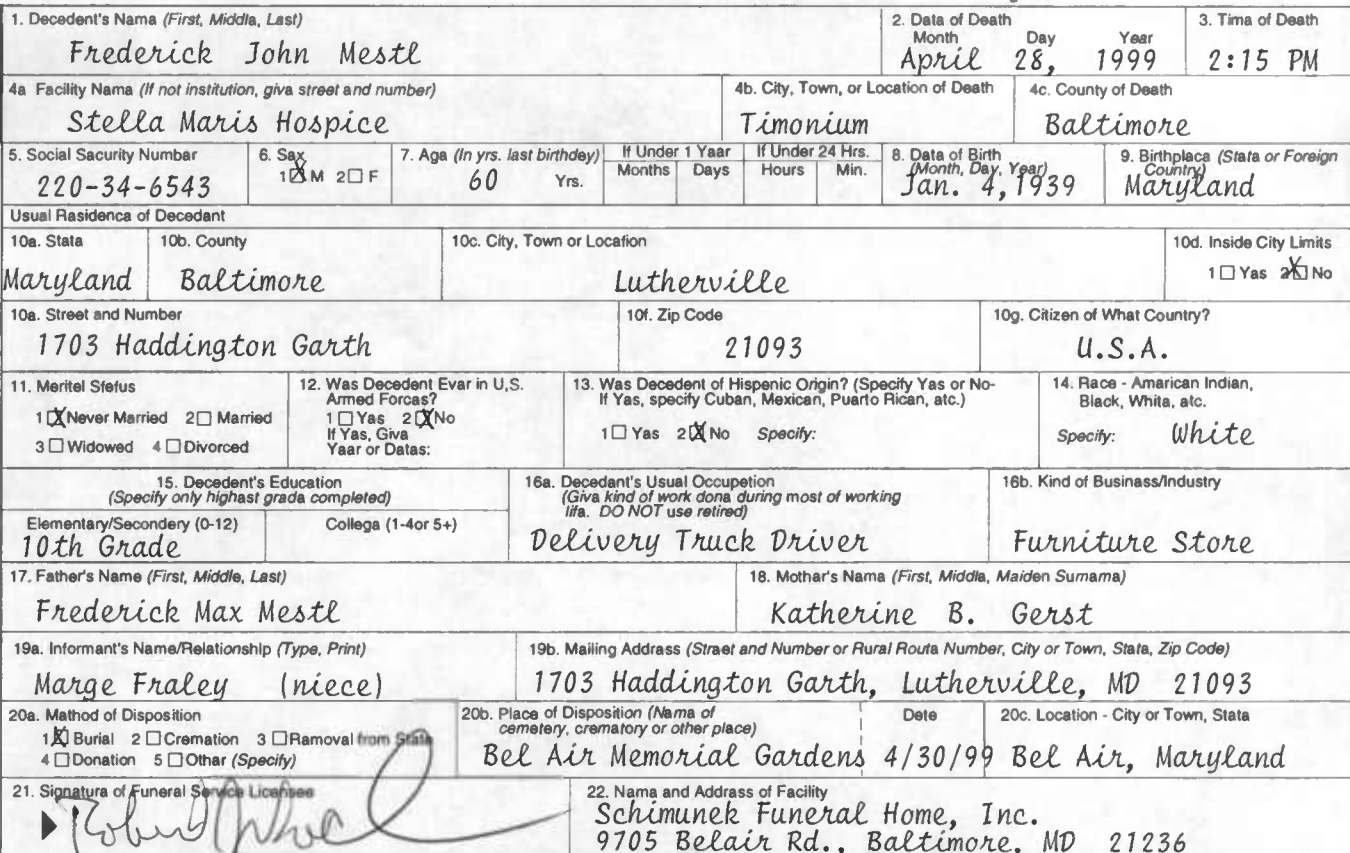 1. Decedent's Name (First, Middle, Last)
Frederick John Mestl
2. Data of Death
Month Day Year
April 28, 1999
3. Tima of Death
2:15 PM
4a Facility Name (If not institution, giva street and number)
Stella Maris Hospice
4b. City, Town, or Location of Death
Timonium
4c. County of Death
Baltimore
5. Social Sacurity Numbar
220-34-6543
6. Sax
1 X M 2 □ F
7. Aga (In yrs. last birthdey)
60 Yrs.
If Under 1 Yaar
Months Days
If Under 24 Hrs.
Hours Min.
8. Data of Birth
(Month, Day, Year)
Jan. 4, 1939
9. Birthplaca (Stata or Foreign
Country)
Maryland
Usual Rasidenca of Decedant
10a. Stata
Maryland
10b. County
Baltimore
10c. City, Town or Location
Lutherville
10d. Inside City Limits
1 □ Yas 2 X No
10a. Street and Number
1703 Haddington Garth
10f. Zip Code
21093
10g. Citizen of What Country?
U.S.A.
11. Meritel Stefus
1 X Never Married 2 □ Married
3 □ Widowed 4 □ Divorced
12. Was Decedent Evar in U,S.
Armed Forcas?
1 □ Yas 2 X No
If Yas, Giva
Yaar or Datas:
13. Was Decedent of Hispenic Origin? (Specify Yas or No-
If Yas, specify Cuban, Mexican, Puarto Rican, atc.)
1 □ Yas 2 X No Specify:
14. Raca - Amarican Indian,
Black, Whita, atc.
Specify: White
15. Decedent's Education
(Specify only highest grada completed)
Elementary/Secondery (0-12)
10th Grade
Collega (1-4or 5+)
16a. Decedant's Usual Occupetion
(Giva kind of work dona during most of working
lifa. DO NOT use retired)
Delivery Truck Driver
16b. Kind of Businass/Industry
Furniture Store
17. Father's Name (First, Middle, Last)
Frederick Max Mestl
18. Mothar's Nama (First, Middla, Maiden Surnama)
Katherine B. Gerst
19a. Informant's Name/Relationship (Type, Print)
Marge Fraley (niece)
19b. Mailing Address (Straet and Number or Rural Routa Number, City or Town, Stata, Zip Code)
1703 Haddington Garth, Lutherville, MD 21093
20a. Mathod of Disposition
1 X Burial 2 □ Cremation 3 □ Ramoval from State
4 □ Donation 5 □ Othar (Specify)
20b. Placa of Disposition (Nama of
cemetery, crematory or other place)
Bel Air Memorial Gardens
Dete
4/30/99
20c. Location - City or Town, Stata
Bel Air, Maryland
21. Signatura of Funeral Service Licensee
22. Name and Address of Facility
Schimunek Funeral Home, Inc.
9705 Belair Rd., Baltimore, MD 21236